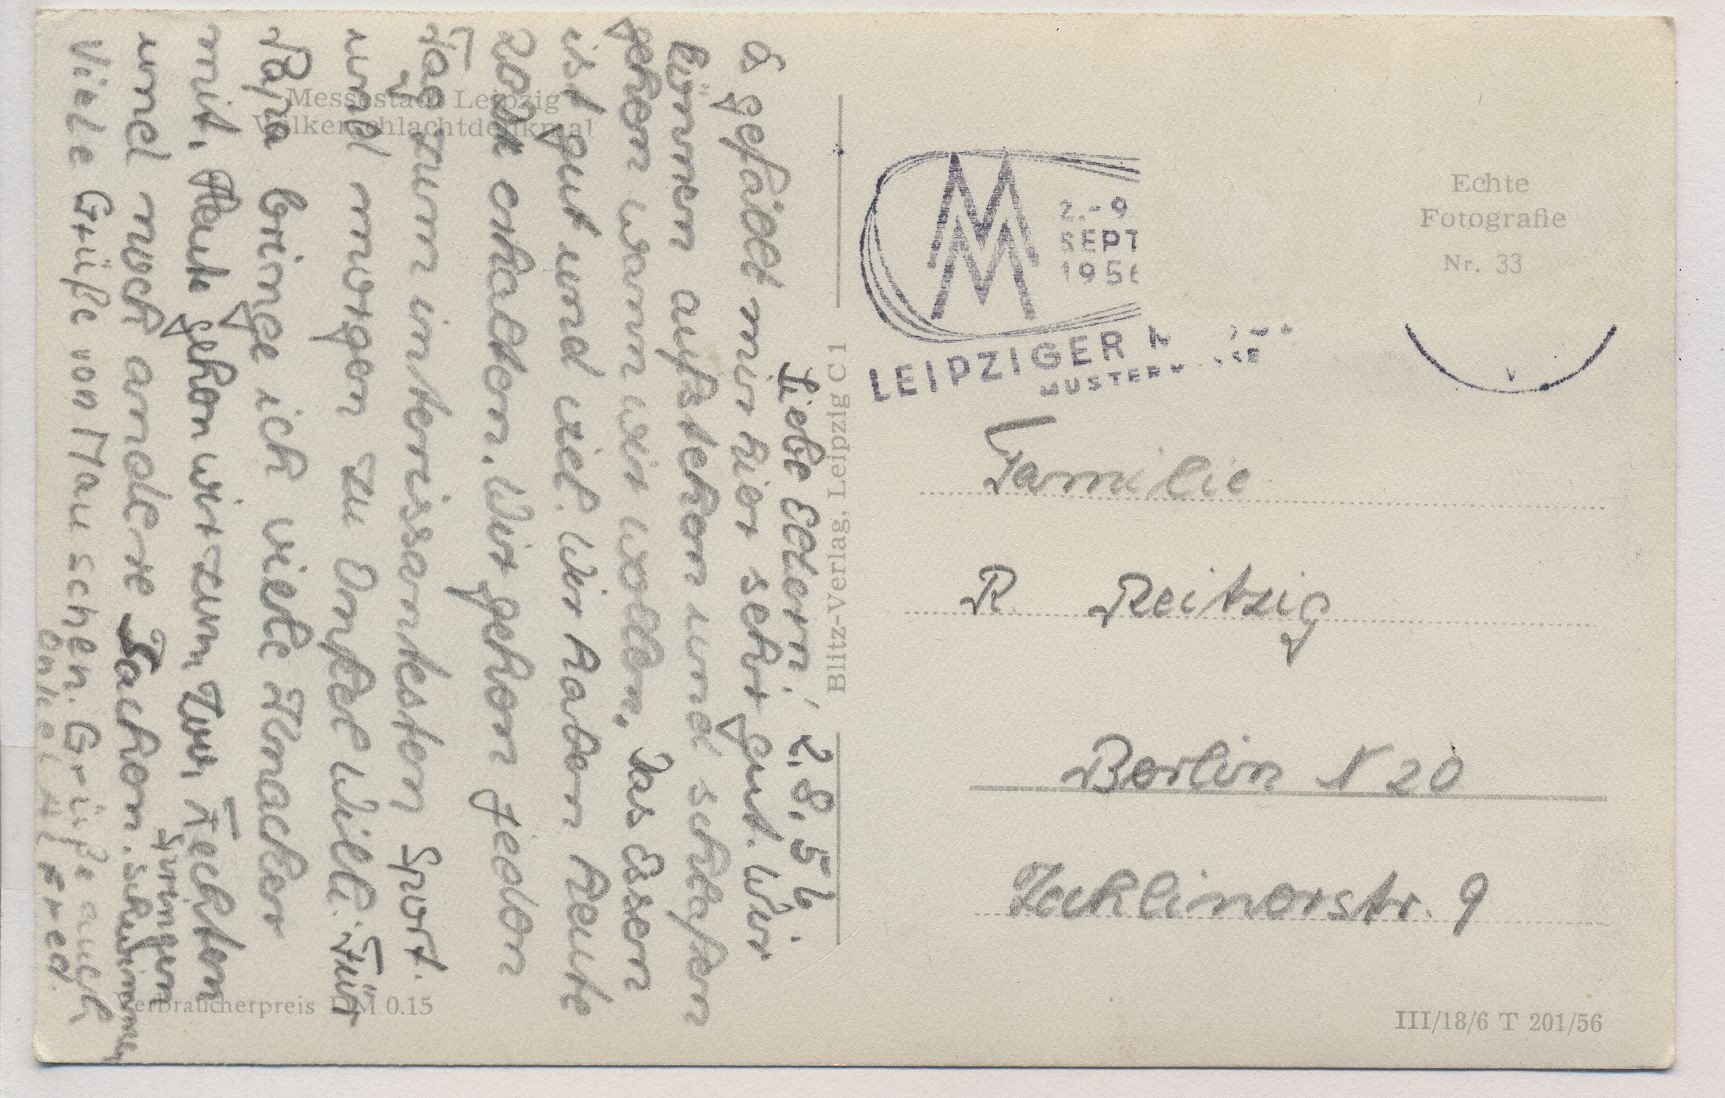 Messestadt Leipzig
Völkerschlachtdenkmal
Liebe Eltern! 2.8.56.
Es gefällt mir hier sehr gut. Wir
können aufstehen und schlafen
gehen wann wir wollen, Das Essen
ist gut und viel. Wir haben heute
20DM erhalten. Wir gehen jeden
Tag zum interissantesten Sport.
und morgen zu Onkel Willi. Für
Papa bringe ich viele Knacker
mit. Heute gehen wir zum Fechten
springen
und noch andere Sachen. schwimmen
Viele Grüße von Mauschen. Grüße auch
Onkel Alfred.
Blitz-Verlag, Leipzig C 1
Verbraucherpreis DM 0.15
Echte
Fotografie
Nr. 33
MM
2.-9
SEPT
1956
LEIPZIGER
Familie
R. Reitzig
Berlin N 20
Zechlinerstr. 9
III/18/6 T 201/56